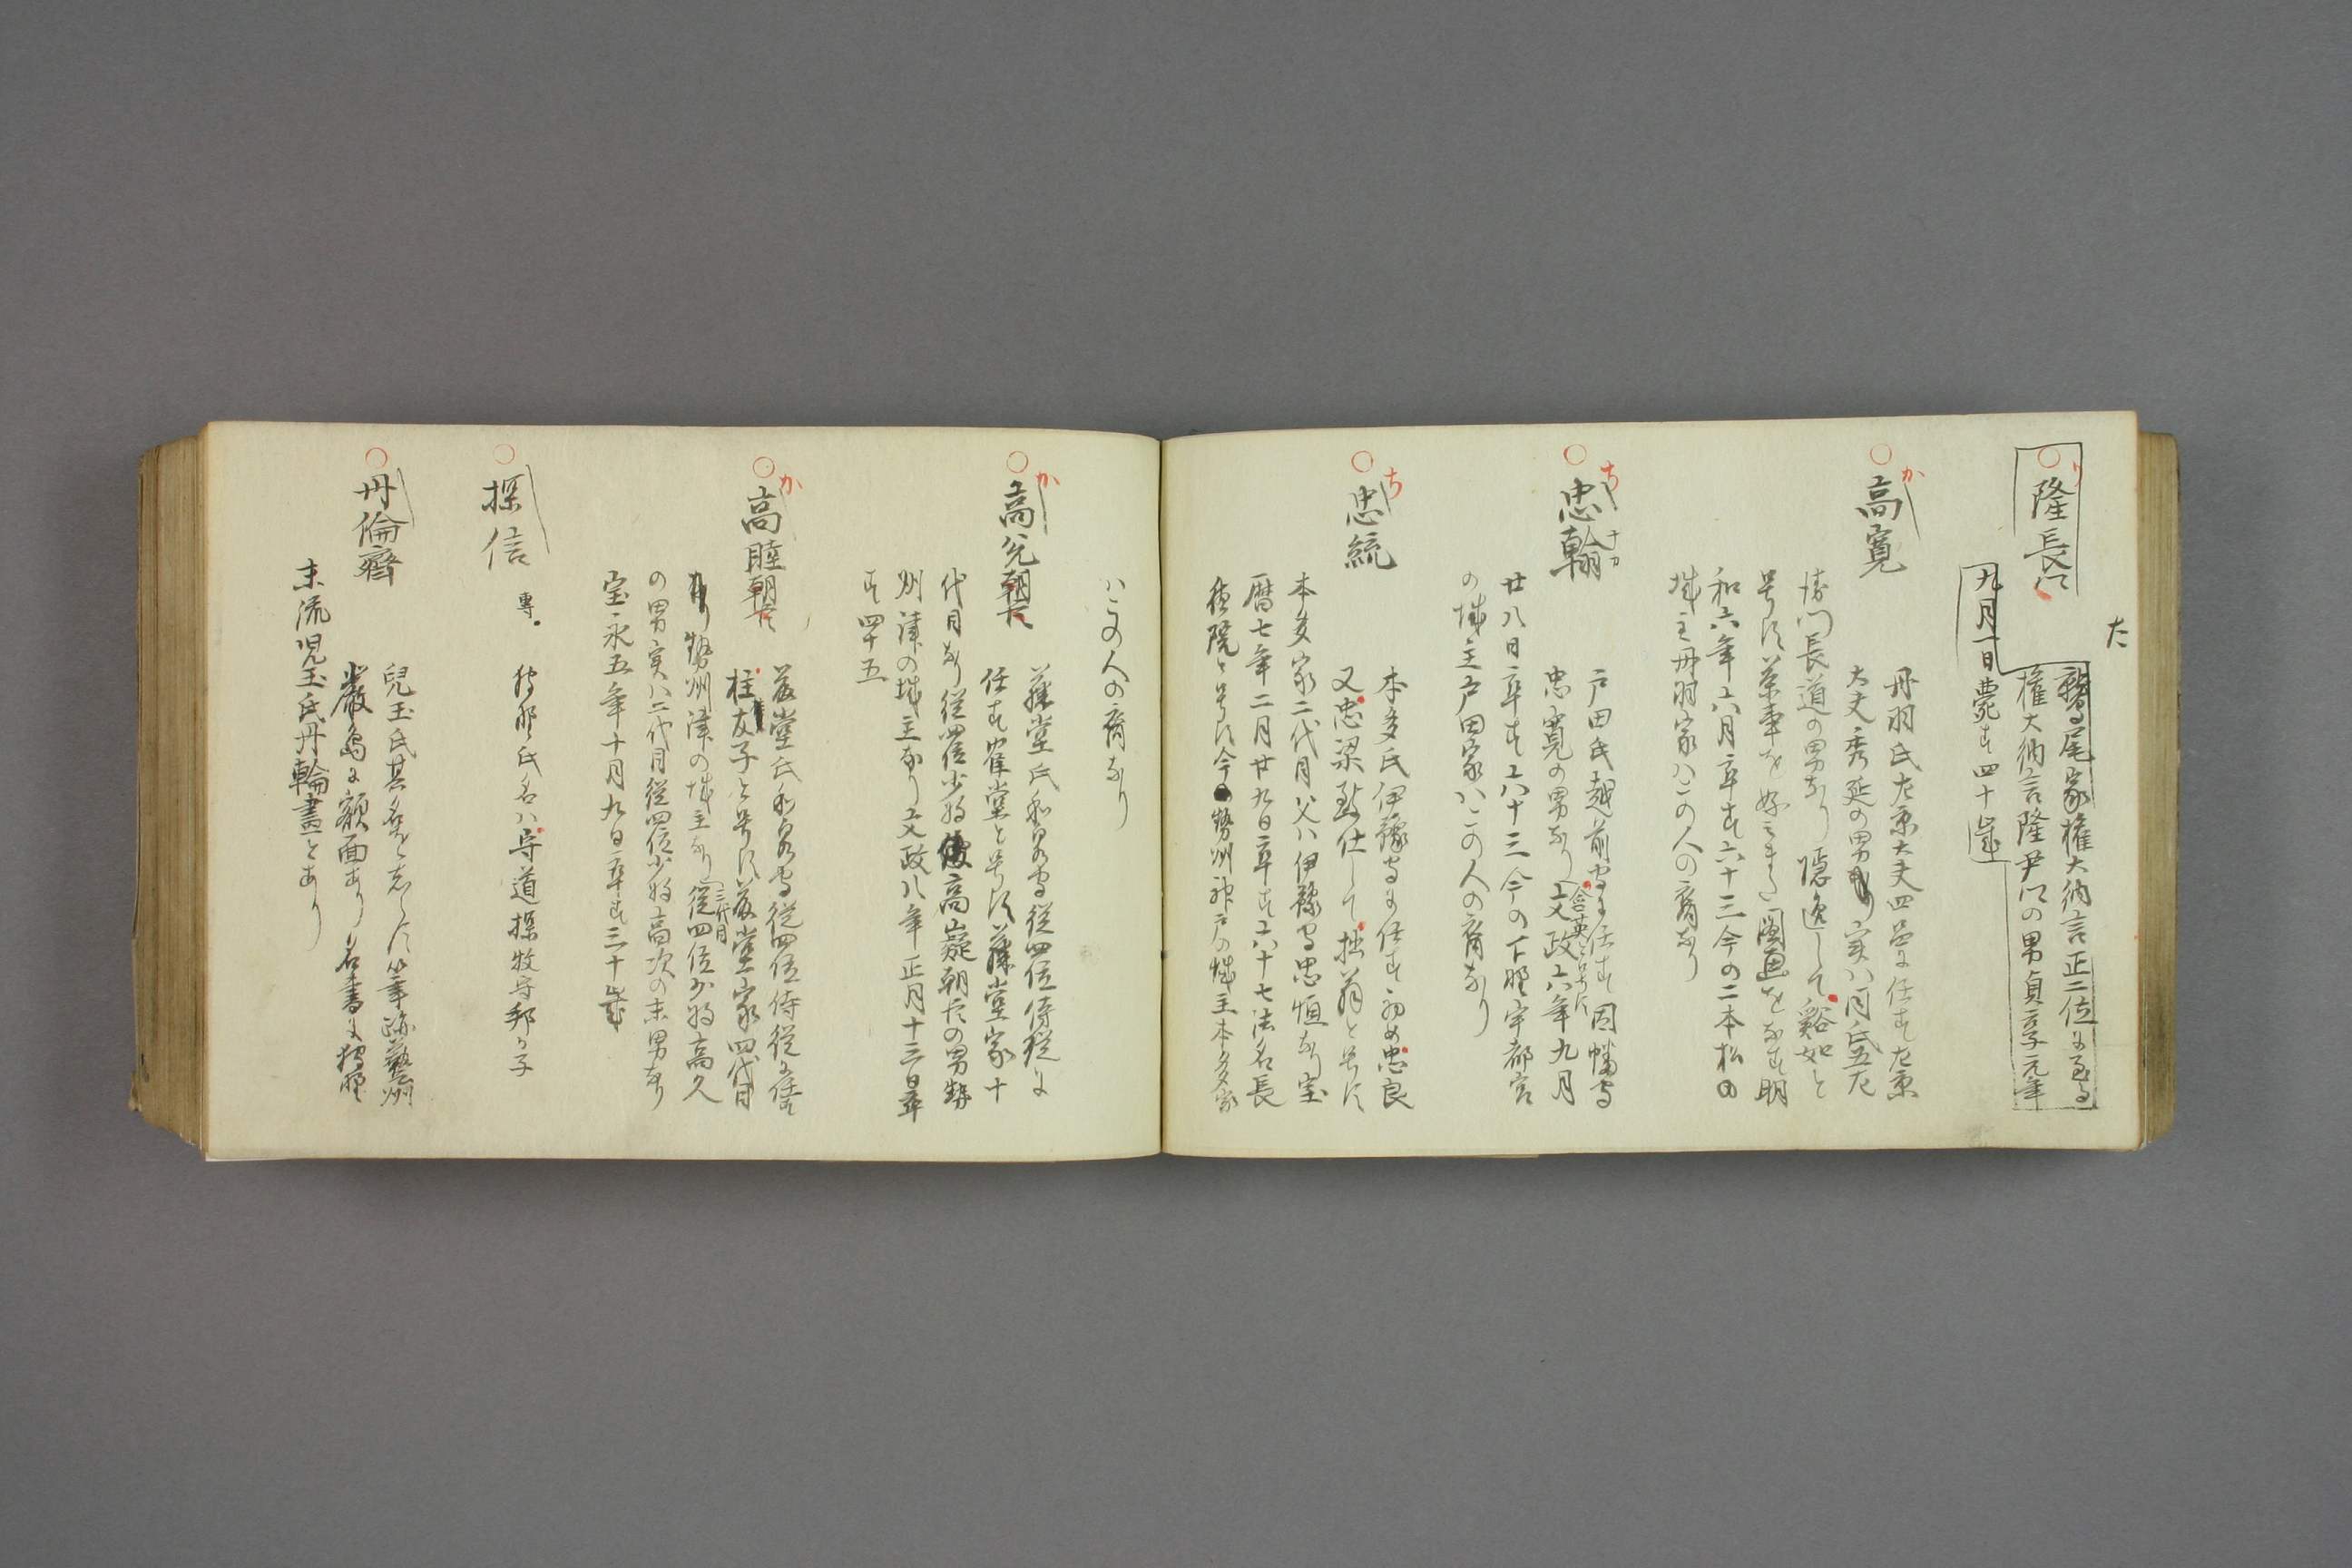 た
隆長卿
鷲尾家権大納言正二位に至る
権大納言隆尹卿の男貞享元年
九月一日薨す四十歳
か
高寛
丹羽氏左京大夫四品に任す左京
大夫秀延の男実ハ同氏五左
衛門長道の男なり隠逸して谿如と
号す茶事を好ミまた国画をなす明
和六年六月卒す六十三今の二本松の
城主丹羽家ハこの人の裔なり
ち
忠翰
戸田氏越前守に任す因幡守
忠寛の男なり含英と号す文政六年九月
廿八日卒す六十三今の下野宇都宮
の城主戸田家ハこの人の裔なり
ち
忠統
本多氏伊豫守に任す初め忠良
又忠梁致仕して拙翁と号す
本多家二代目父ハ伊豫守忠恒なり宝
暦七年二月廿九日卒す六十七法名長
徳院と号す今勢州神戸の城主本多家
ハこの人の裔なり
か
高兌朝臣
藤堂氏和泉守従四位侍従に
任す寉堂と号す藤堂家十
代目なり従四位少将高嶷朝臣の男勢
州津の城主なり文政八年正月十三日卒
す四十五
か
高睦朝臣
藤堂氏和泉守従四位侍従に任す
桂友子と号す藤堂家四代目
なり勢州津の城主なり三代目従四位少将高久
の男実ハ二代目従四位少将高次の末男なり
宝永五年十月九日卒す三十歳
探信
専
狩野氏名ハ守道探牧守邦の子
丹倫齋
兒玉氏其名を志らす筆跡藝州
嚴島に額面あり名書に狩野
末流児玉氏丹輪畫とあり